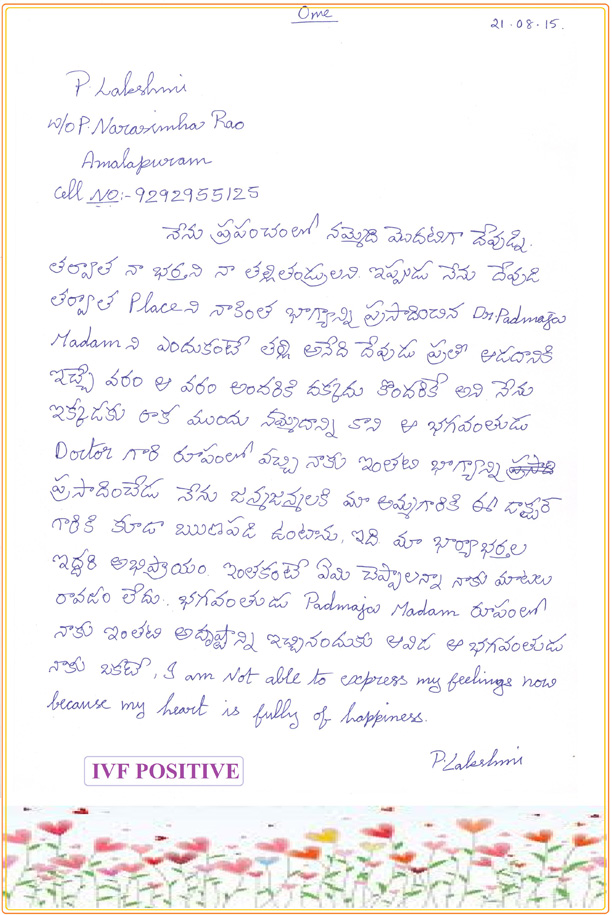 Ome
21-08-15.
P. Lakshmi
W/o P. Narasimha Rao
Amalapuram
Cell NO:- 9292955125
నేను ప్రపంచంలో నమ్మేది మొదటిగా దేవుడ్ని.
తర్వాత నా భర్తని నా తల్లితండ్రులని. ఇప్పుడు నేను దేవుడి
తర్వాత Place ని నాకింత భాగ్యాన్ని ప్రసాదించిన Dr. Padmaja
Madam ని ఎందుకంటే తల్లి అనేది దేవుడు ప్రతి ఆడదానికి
ఇచ్చే వరం ఆ వరం అందరికి దక్కదు కొందరికే అని నేను
ఇక్కడకు రాక ముందు నమ్మేదాన్ని కాని ఆ భగవంతుడు
Doctor గారి రూపంలో వచ్చి నాకు ఇంతటి భాగ్యాన్ని ప్రసాది
ప్రసాదించేడు నేను జన్మజన్మలకి మా అమ్మగారికి ఈ డాక్టర్
గారికి కూడా ఋణపడి ఉంటాను, ఇది మా భార్యాభర్తల
ఇద్దరి అభిప్రాయం. ఇంతకంటే ఏమి చెప్పాలన్నా నాకు మాటలు
రావడం లేదు. భగవంతుడు Padmaja Madam రూపంలో
నాకు ఇంతటి అదృష్టాన్ని ఇచ్చినందుకు ఆవిడ ఆ భగవంతుడు
నాకు ఒకటే, I am Not able to express my feelings now
because my heart is fully of happiness.
P. Lakshmi
IVF POSITIVE